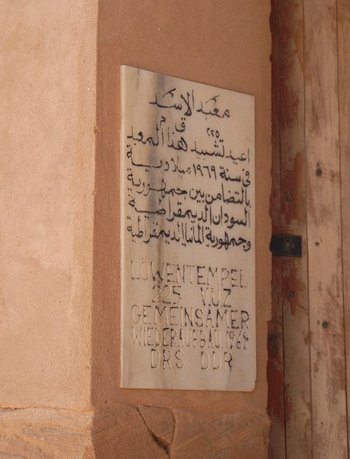 معبد الاسد
ق م
٢٢٥
اعيد تشييد هذا المعبد
فى سنة ١٩٦٩ ميلادية
بالتضامن بين جمهورية
السودان الديمقراطية
وجمهورية المانيا الديمقراطية
LÖWENTEMPEL
225 V.U.Z
GEMEINSAMER
WIEDERAUFBAU 1969
DRS DDR